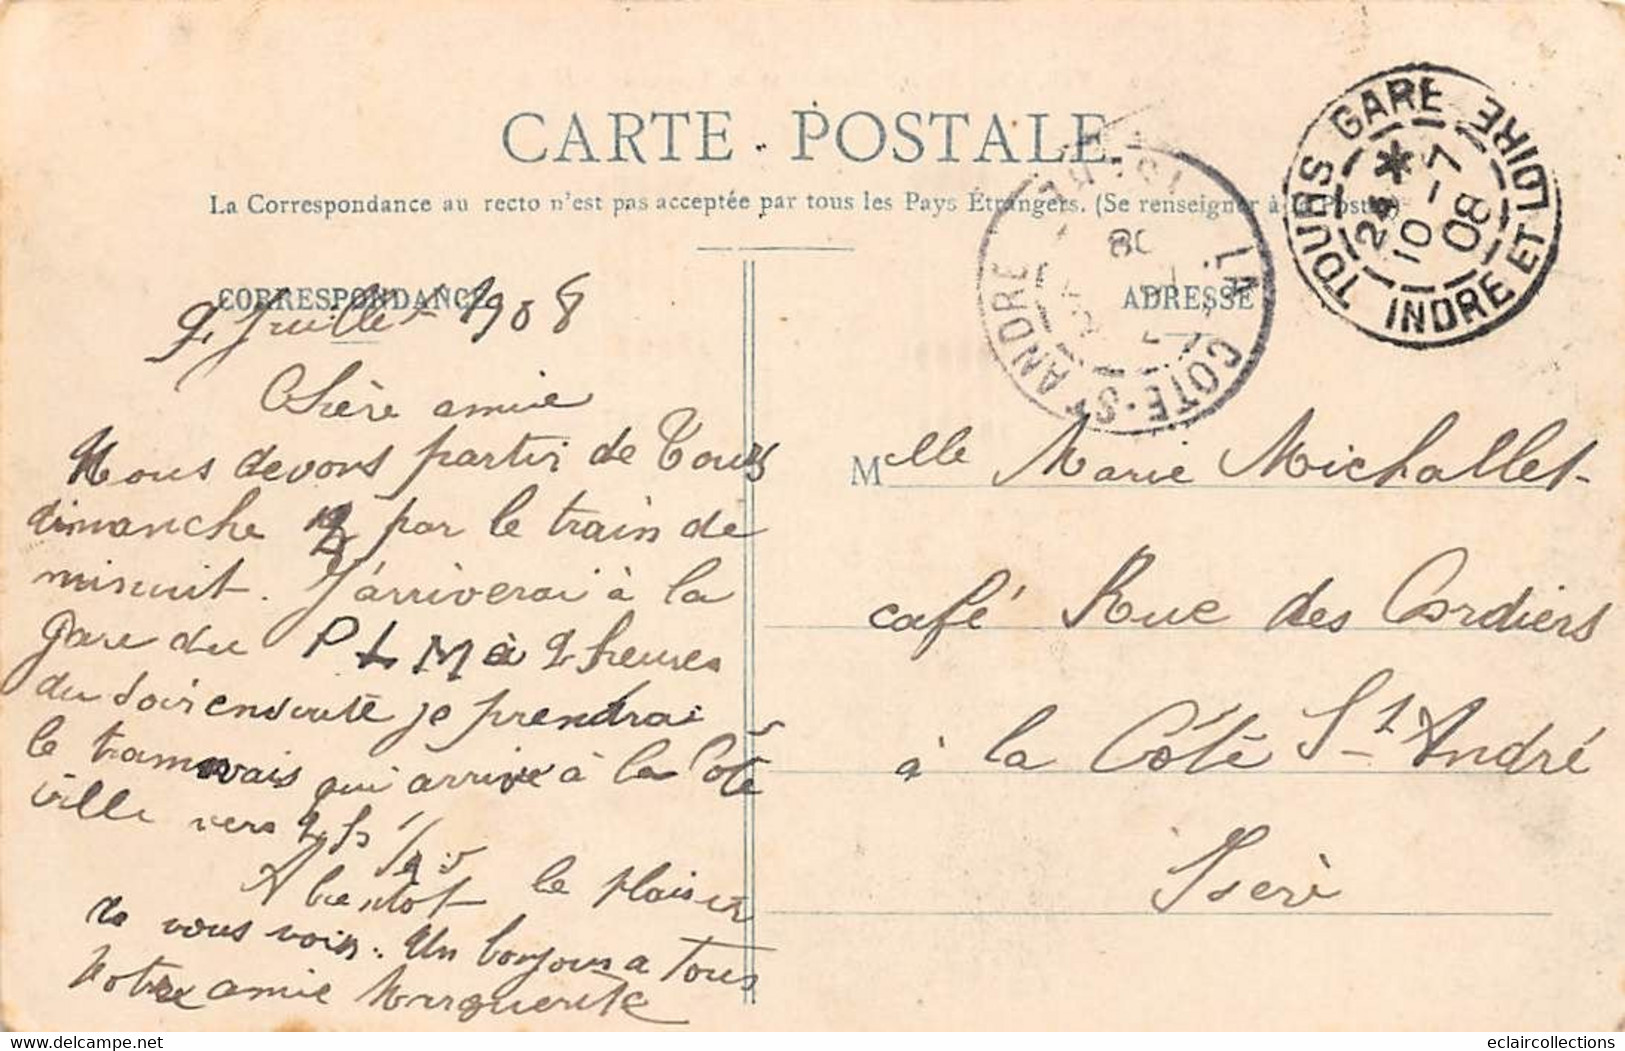 CARTE POSTALE
La Correspondance au recto n'est pas acceptée par tous les Pays Étrangers. (Se renseigner à la Poste)
CORRESPONDANCE
9 Juillet 1908
Chère amie
Nous devons partir de Tours
dimanche 12 par le train de
minuit. J'arriverai à la
gare du PLM à 2 heures
du soir ensuite je prendrai
le tramwais qui arrive à la Cote
ville vers 2h 1/2
A bientot le plaisir
de vous voir. Un bonjour a tous
Votre amie Marguerite
ADRESSE
Mlle Marie Michallet
café Rue des Cordiers
à la Côte St André
Isère
TOURS GARE INDRE ET LOIRE
24 *
10 - 7
08
LA COTE-ST ANDRE
ISERE
08
eclaircollections